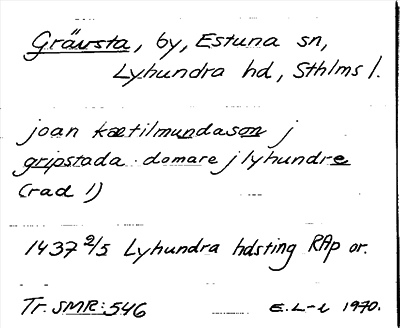 Grävsta, by, Estuna sn,
Lyhundra hd, Sthlms l.
joan kætilmundason j
gripstada. domare j lyhundre
(rad 1)
1437 2/5 Lyhundra hdsting RAp or.
Tr. SMR: 546 E. L-l 1970.